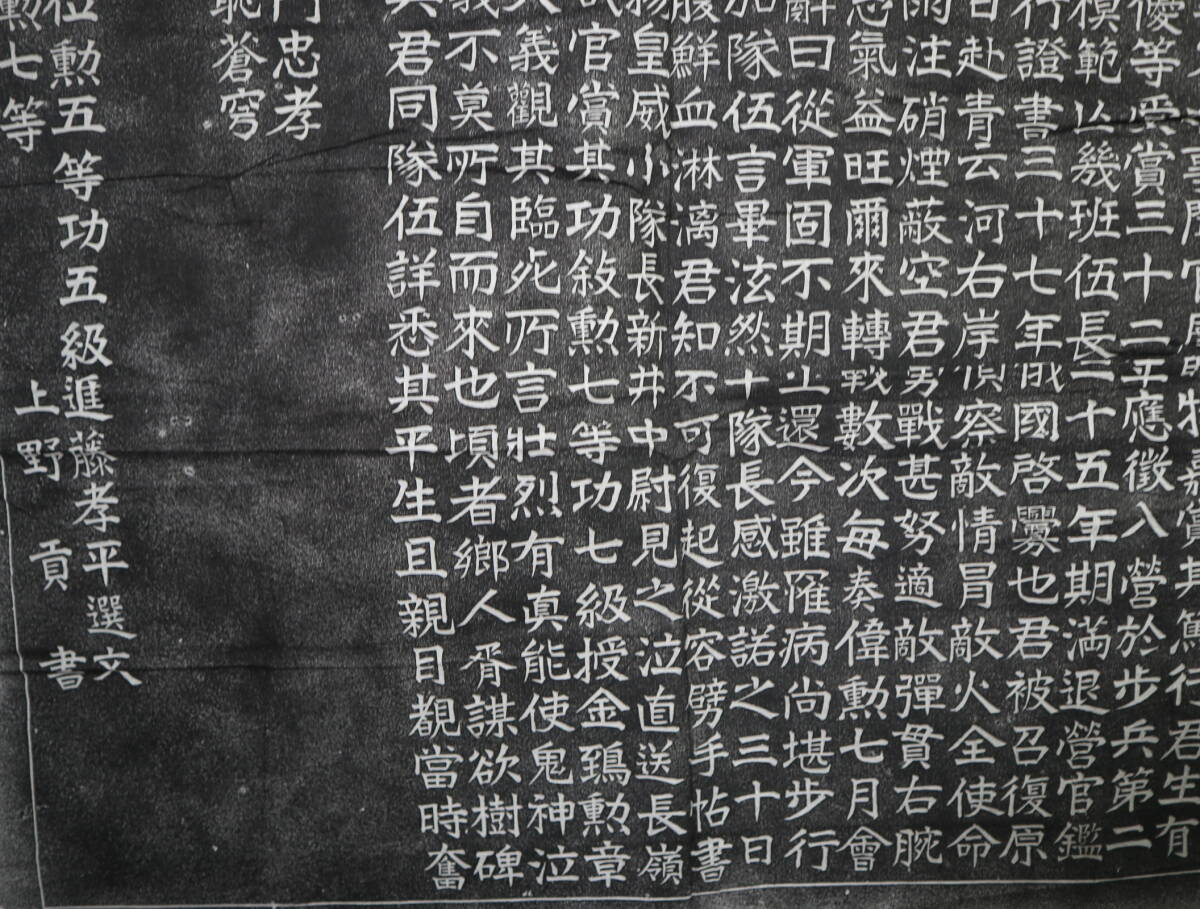 嘉賞其篤行君生有
優等受賞三十二年應徵入營於步兵第二
模範以幾班伍長三十五年期滿退營官鑑
行證書三十七年我國啓釁也君被召復原
日赴青云河右岸偵察敵情冒敵火全使命
雨注硝煙蔽空君勇戰甚努適敵彈貫右腕
氣益旺爾來轉戰數次每奏偉勳七月會
辭曰從軍固不期生還今雖罹病尚堪步行
加隊伍言畢泫然下隊長感激諾之三十日
腹鮮血淋漓君知不可復起從容劈手帖書
揚皇威小隊長新井中尉見之泣直送長嶺
官賞其功敍勳七等功七級授金鵄勳章
大義觀其臨死所言壯烈有真能使鬼神泣
義不莫所自而來也頃者鄉人胥謀欲樹碑
與君同隊伍詳悉其平生且親目覩當時奮
門忠孝
恥蒼穹
位勳五等功五級進藤孝平選文
勳七等 上野貢書